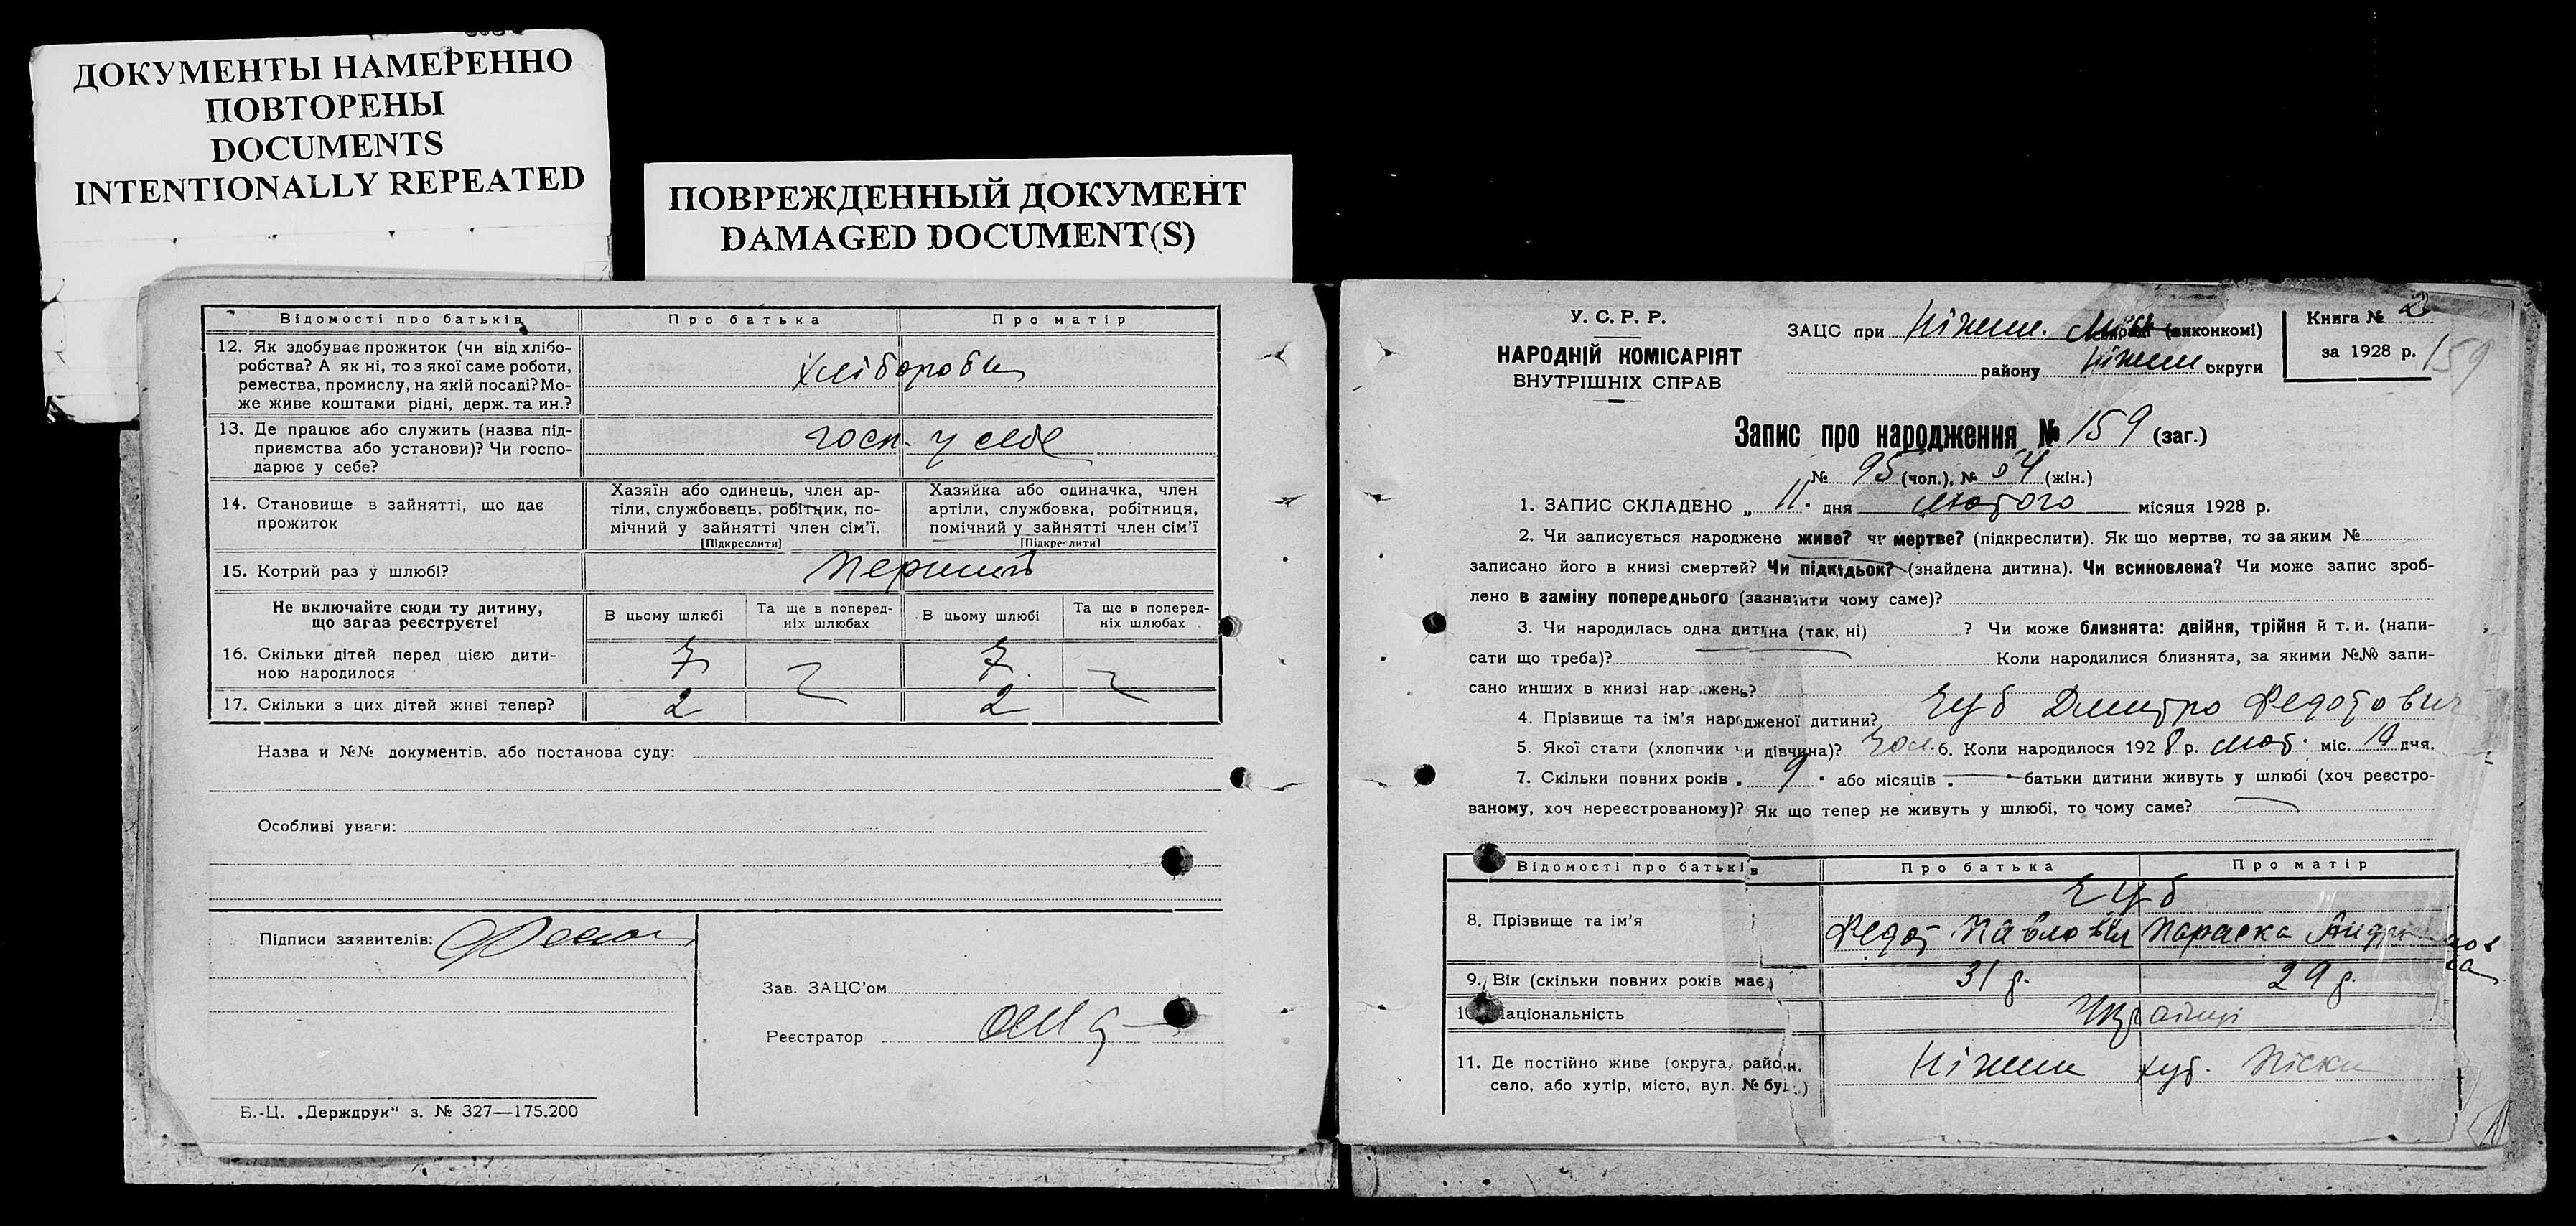 ДОКУМЕНТЫ НАМЕРЕННО
ПОВТОРЕНЫ
DOCUMENTS
INTENTIONALLY REPEATED
ПОВРЕЖДЕННЫЙ ДОКУМЕНТ
DAMAGED DOCUMENT(S)
Відомості про батьків Про батька Про матір
12. Як здобуває прожиток (чи від хлібо-
робства? А як ні, то з якої саме роботи,
ремества, промислу, на якій посаді? Мо-
же живе коштами рідні, держ. та ин.?
Хлібороби
13. Де працює або служить (назва під-
приємства або установи)? Чи госпо-
дарює у себе?
госп. у себе
14. Становище в зайнятті, що дає
прожиток
Хазяїн або одинець, член ар-
тілі, службовець, робітник, по-
мічний у зайнятті член сім'ї.
[Підкреслити]
Хазяйка або одиначка, член
артілі, службовка, робітниця,
помічний у зайнятті член сім'ї
[Підкреслити]
15. Котрий раз у шлюбі? Перший
Не включайте сюди ту дитину,
що зараз реєструєте!
В цьому шлюбі Та ще в поперед-
ніх шлюбах В цьому шлюбі Та ще в поперед-
ніх шлюбах
16. Скільки дітей перед цією дити-
ною народилося
17. Скільки з цих дітей живі тепер? 2 2
Назва и №№ документів, або постанова суду:
Особливі уваги:
Підписи заявителів:
Зав. ЗАЦС'ом
Реєстратор
Б.-Ц. „Держдрук" з. № 327—175.200
У. С. Р. Р.
НАРОДНІЙ КОМІСАРІЯТ
ВНУТРІШНІХ СПРАВ
ЗАЦС при Ніжен. (виконкомі)
району Ніжен округи
Книга № 2
за 1928 р.
159
Запис про народження № 159 (заг.)
№ 95 (чол.), № 64 (жін.)
1. ЗАПИС СКЛАДЕНО „ 11 " дня лютого місяця 1928 р.
2. Чи записується народжене живе? чи мертве? (підкреслити). Як що мертве, то за яким №
записано його в книзі смертей? Чи підкидьок? (знайдена дитина). Чи всиновлена? Чи може запис зроб-
лено в заміну попереднього (зазначити чому саме)?
3. Чи народилась одна дитина (так, ні) ? Чи може близнята: двійня, трійня й т. и. (напи-
сати що треба)? Коли народилися близнята, за якими №№ запи-
сано инших в книзі народжень?
4. Прізвище та ім'я народженої дитини? Чуб Дмитро Федотович
5. Якої стати (хлопчик чи дівчина)? Чол. 6. Коли народилося 1928 р. лют. міс. 10 дня.
7. Скільки повних років „ 9 " або місяців „ " батьки дитини живуть у шлюбі (хоч реєстро-
ваному, хоч нереєстрованому)? Як що тепер не живуть у шлюбі, то чому саме?
Відомості про батьків Про батька Про матір
Чуб
8. Прізвище та ім'я Федот Павлович Параска
9. Вік (скільки повних років має) 31 р. 29 р.
10. Національність Українці
11. Де постійно живе (округа, район,
село, або хутір, місто, вул. № буд.)
Ніжен хут. Піски